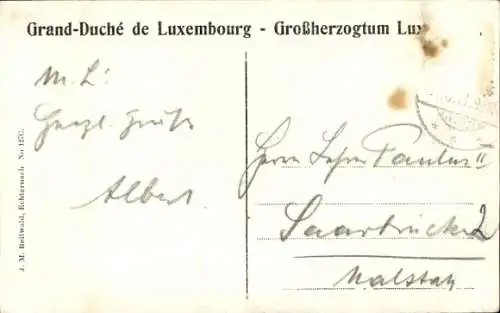 Grand-Duché de Luxembourg - Großherzogtum Lux
M. L!
Herzl. Grüße
Albert
J. M. Bellwald, Echternach No
Herrn Lehrer Paulus II
Saarbrücken 2
Malstatt